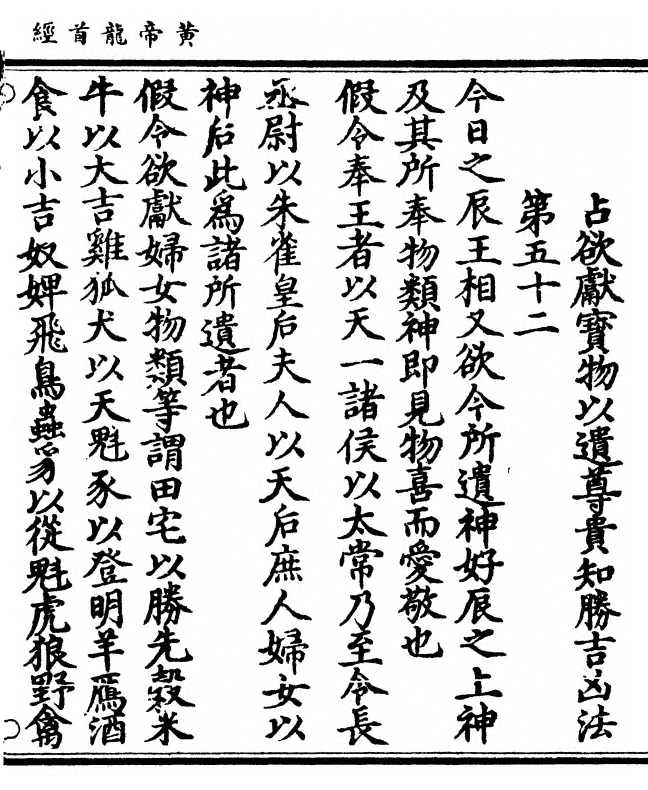 黃帝龍首經
占欲獻寶物以遺尊貴知勝吉凶法
第五十二
今日之辰王相又欲令所遺神好辰之上神
及其所奉物類神即見物喜而愛敬也
假令奉王者以天一諸侯以太常乃至令長
丞尉以朱雀皇后夫人以天后庶人婦女以
神后此爲諸所遺者也
假令欲獻婦女物類等謂田宅以勝先穀米
牛以大吉雞狐犬以天魁豕以登明羊鴈酒
食以小吉奴婢飛鳥蟲豸以從魁虎狼野禽